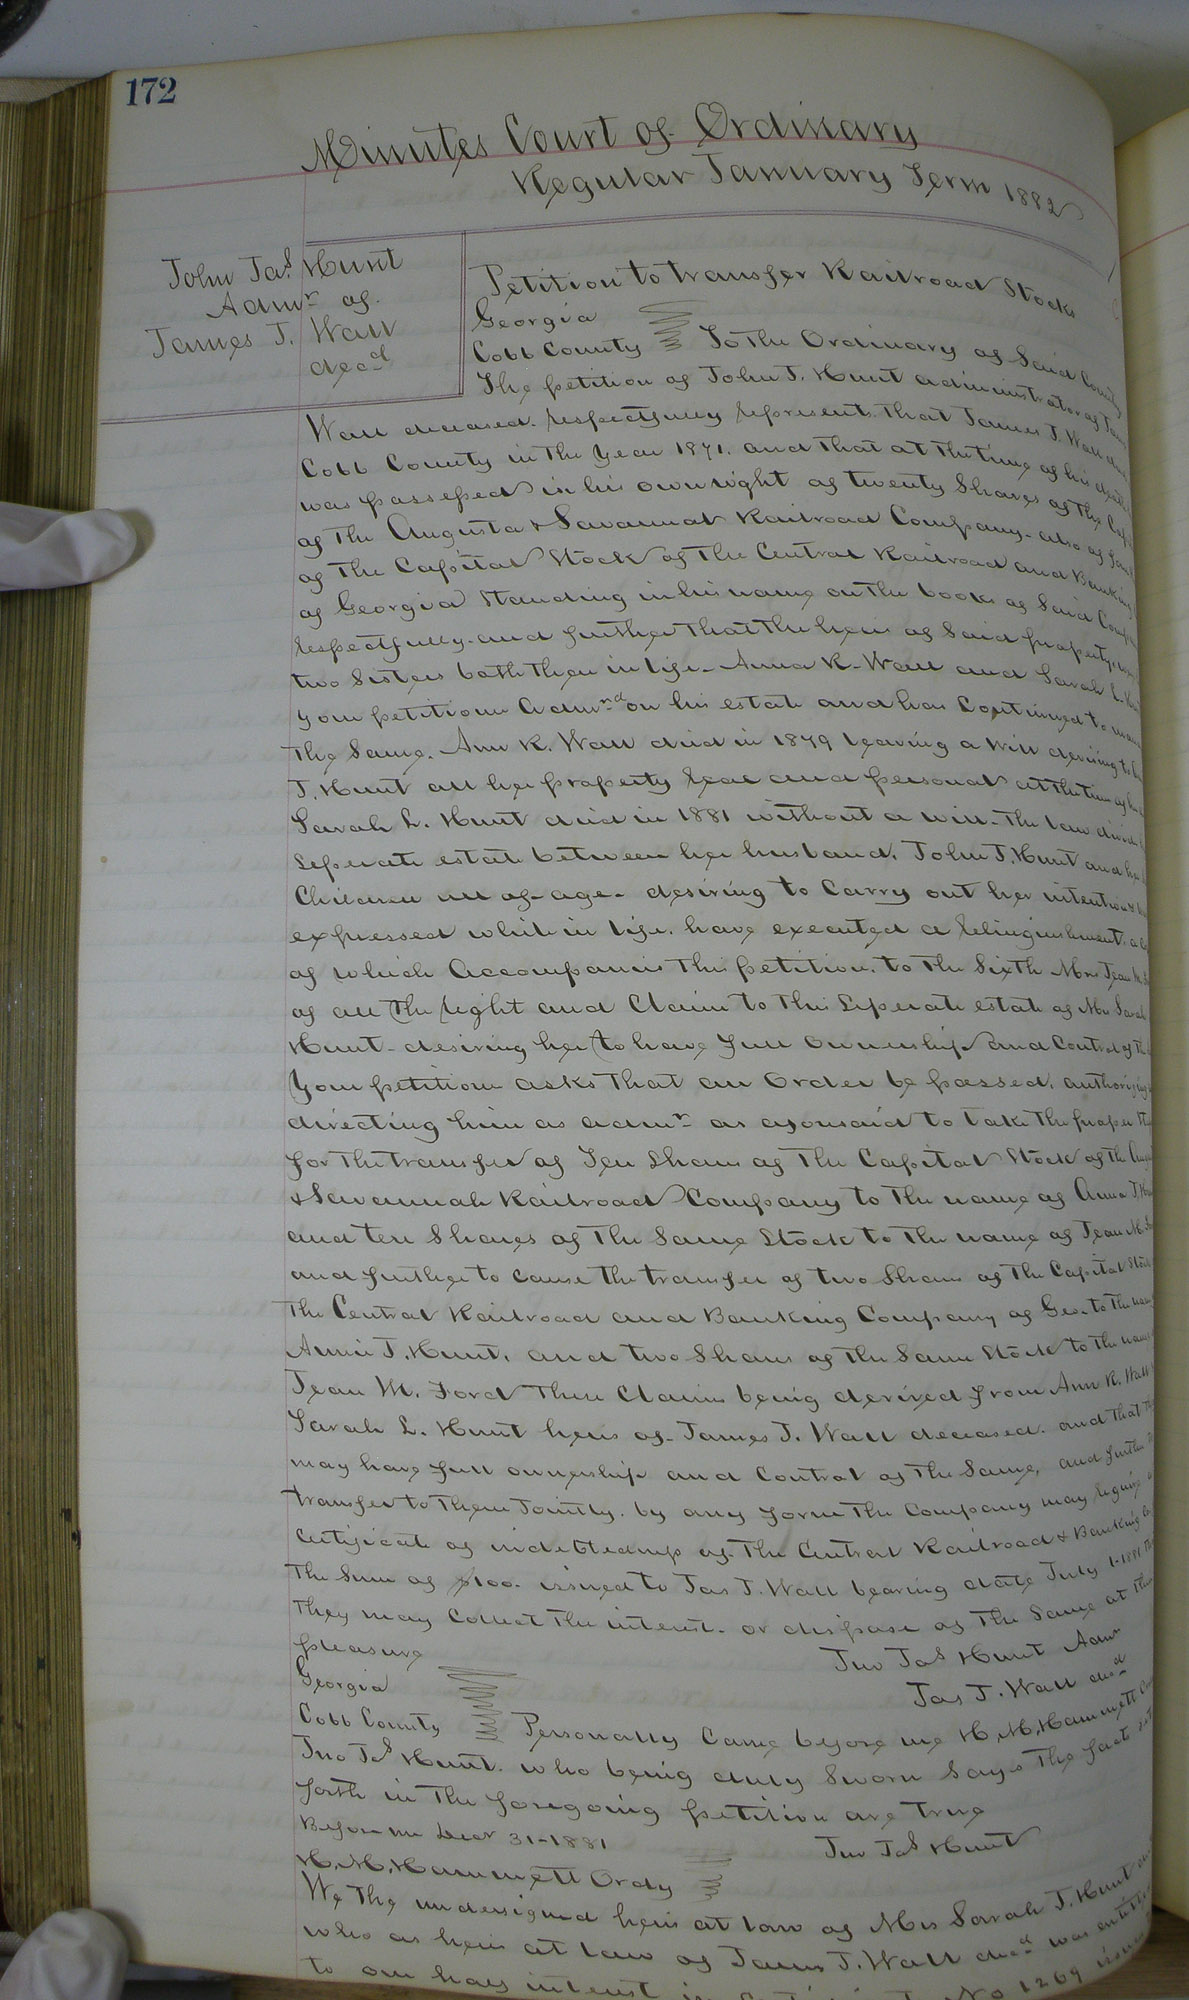 172
Minutes Court of Ordinary
Regular January Term 1882
John Jas. Hunt
Admr of
James J. Wall
decd
Petition to transfer Railroad Stocks
Georgia
Cobb County To the Ordinary of Said County
The petition of John J. Hunt administrator of
Wall deceased. respectfully represents that James J. Wall
Cobb County in the Year 1871. and that at the time of his death
was possessed in his own right of twenty Shares of the
of the Augusta & Savannah Railroad Company. also of
of the Capital Stock of the Central Railroad and Banking
of Georgia Standing in his name on the books of Said
respectfully. and further that the heirs of Said property,
two Sisters both then in life. Anna K. Wall and Sarah L.
your petitioner Admrd on his estate and has Continued to
the Same. Ann K. Wall died in 1879 leaving a will devising to
J. Hunt all her property real and personal at the time of
Sarah L. Hunt died in 1881 without a will. The law
Seperate estate between her husband. John J. Hunt and her
Children all of age. desiring to Carry out her intentions
expressed while in life. have executed a relinquishment. a
of which Accompanies this petition. to the Sixth Mrs Jean M.
of all the right and Claim to this Seperate estate of Mrs Sarah
Hunt. desiring her to have full ownership and Control of
Your petitioner asks that an Order be passed. authorizing
directing him as admr as aforesaid to take the proper
for the transfer of Ten Shares of the Capital Stock of the
& Savannah Railroad Company to the name of Anna J.
and ten Shares of the Same Stock to the name of Jean M.
and further to cause the transfer of two Shares of the Capital Stock
The Central Railroad and Banking Company of Geo. to the name
Annie J. Hunt. and two Shares of the Same Stock to the name
Jean M. Ford These Claims being derived from Ann K. Wall
Sarah L. Hunt heirs of James J. Wall deceased. and that
may have full ownership and Control of the Same, and further
transfer to them Jointly. by any form the Company may require
Certificate of indebtedness of the Central Railroad & Banking
the Sum of $100. issued to Jas J. Wall bearing date July 1-1881
they may Collect the interest. or dispose of the Same at their
pleasure
Jno Jas Hunt Admr
Jas J. Wall decd
Georgia
Cobb County Personally Came before me H. M. Hammett
Jno Jas Hunt. who being duly Sworn Says the fact set
forth in the foregoing petition are true
Before me Decr 31-1881
Jno Jas Hunt
H. M. Hammett Ordy
We the undersigned heirs at law of Mrs Sarah J. Hunt
who as heir at law of James J. Wall decd was entitled
to one half interest in No 1269